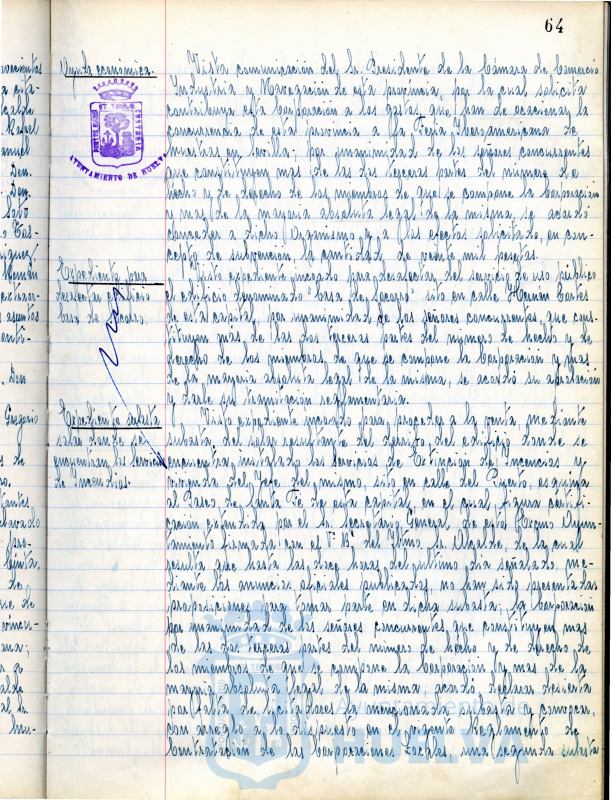 64
Ayuda económica.
Vista comunicación del Sr. Presidente de la Cámara de Comercio
Industria y Navegación de esta provincia, por la cual solicita
contribuya esta Corporación a los gastos, que han de ocasionar la
concurrencia de esta provincia a la Feria Iberoamericana de
muestras en Sevilla; por unanimidad de los señores concurrentes
que constituyen mas de las dos terceras partes del número de
hecho y de derecho de los miembros de que se compone la Corporación
y mas de la mayoría absoluta legal de la misma, se acordó
conceder a dicho Organismo y a los efectos solicitado, en con-
cepto de subvención, la cantidad de veinte mil pesetas.
AYUNTAMIENTO DE HUELVA
Expediente para
desafectar edificio
Casa de Socorro.
Visto expediente incoado para desafectar del servicio de uso público
el edificio denominado Casa de Socorro, sito en calle Hernán Cortés
de esta capital, por unanimidad de los señores concurrentes, que cons-
tituyen más de las dos terceras partes del número de hecho y de
derecho de los miembros de que se compone la Corporación y mas
de la mayoría absoluta legal de la misma, se acordó su aprobación
y darle su tramitación reglamentaria.
Expediente subasta
solar donde se
encuentran los servicios
de Incendios.
Visto expediente incoado para proceder a la venta, mediante
subasta del solar resultante del derribo del edificio donde se
encuentra instalado los servicios de Extinción de Incendios y
vivienda del Jefe del mismo, sito en calle del Puerto, esquina
al Paseo de Santa Fe de esta capital, en el cual figura certifi-
cación extendida por el Sr. Secretario General de este Excmo Ayun-
tamiento firmada con el Vº Bº del Iltmo. Sr. Alcalde, de la cual
resulta que hasta las doce horas del último día señalado me-
diante los anuncios oficiales publicados, no han sido presentadas
proposiciones para tomar parte en dicha subasta; la Corporación
por unanimidad de los señores concurrentes que constituyen mas
de las dos terceras partes del número de hecho y de derecho de
los miembros de que se compone la Corporación y mas de la
mayoría absoluta legal de la misma, acordó declarar desierta
por falta de licitadores la mencionada subasta y convocar,
con arreglo a lo dispuesto en el vigente Reglamento de
Contratación de las Corporaciones Locales, una segunda subasta
Ayuntamiento de
HUELVA